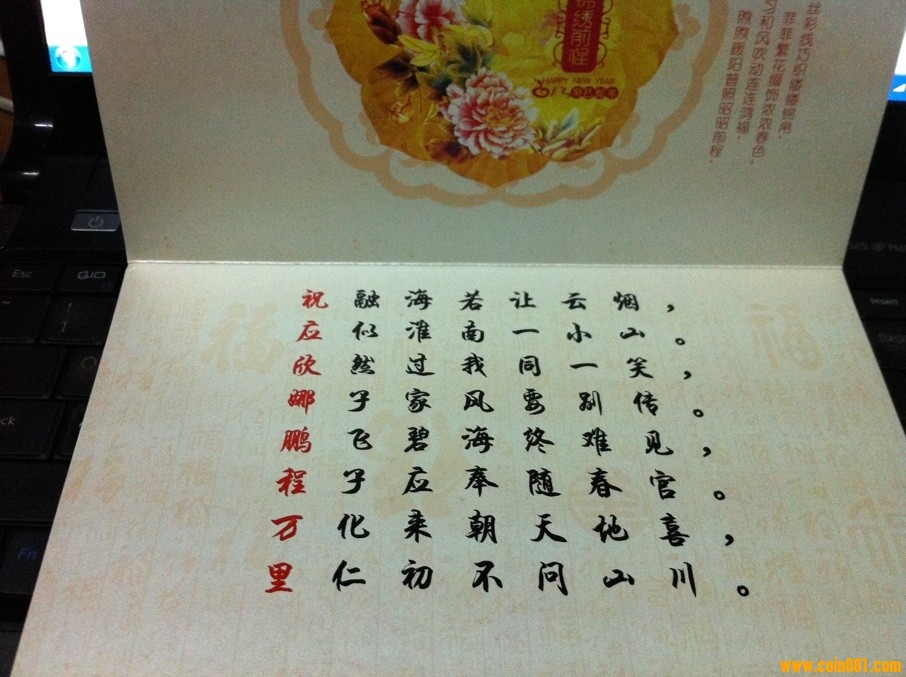 锦绣前程
HAPPY NEW YEAR
丝彩线巧织缕缕锦帛,
菲菲繁花缀饰浓浓春色,
习和风吹动连连鸿福,
煦煦暖阳普照昭昭前程。
Esc
Insert
Fn
祝融海若让云烟，
应似淮南一小山。
欣然过我同一笑，
娜子家风要别传。
鹏飞碧海终难见，
程子应奉随春官。
万化来朝天地喜，
里仁初不问山川。
www.csin001.com